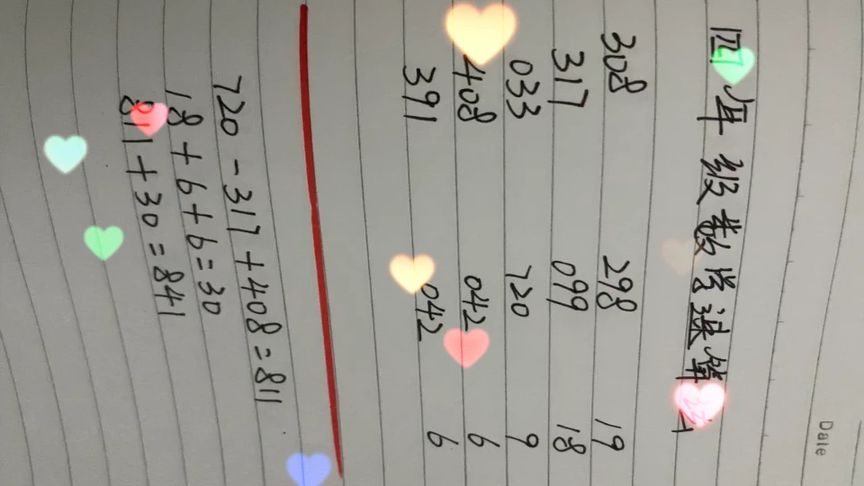 Date
四年级数学速算
308 298 19
317 099 18
033 720 9
408 042 6
391 042 6
720-317+408=811
18+6+6=30
811+30=841